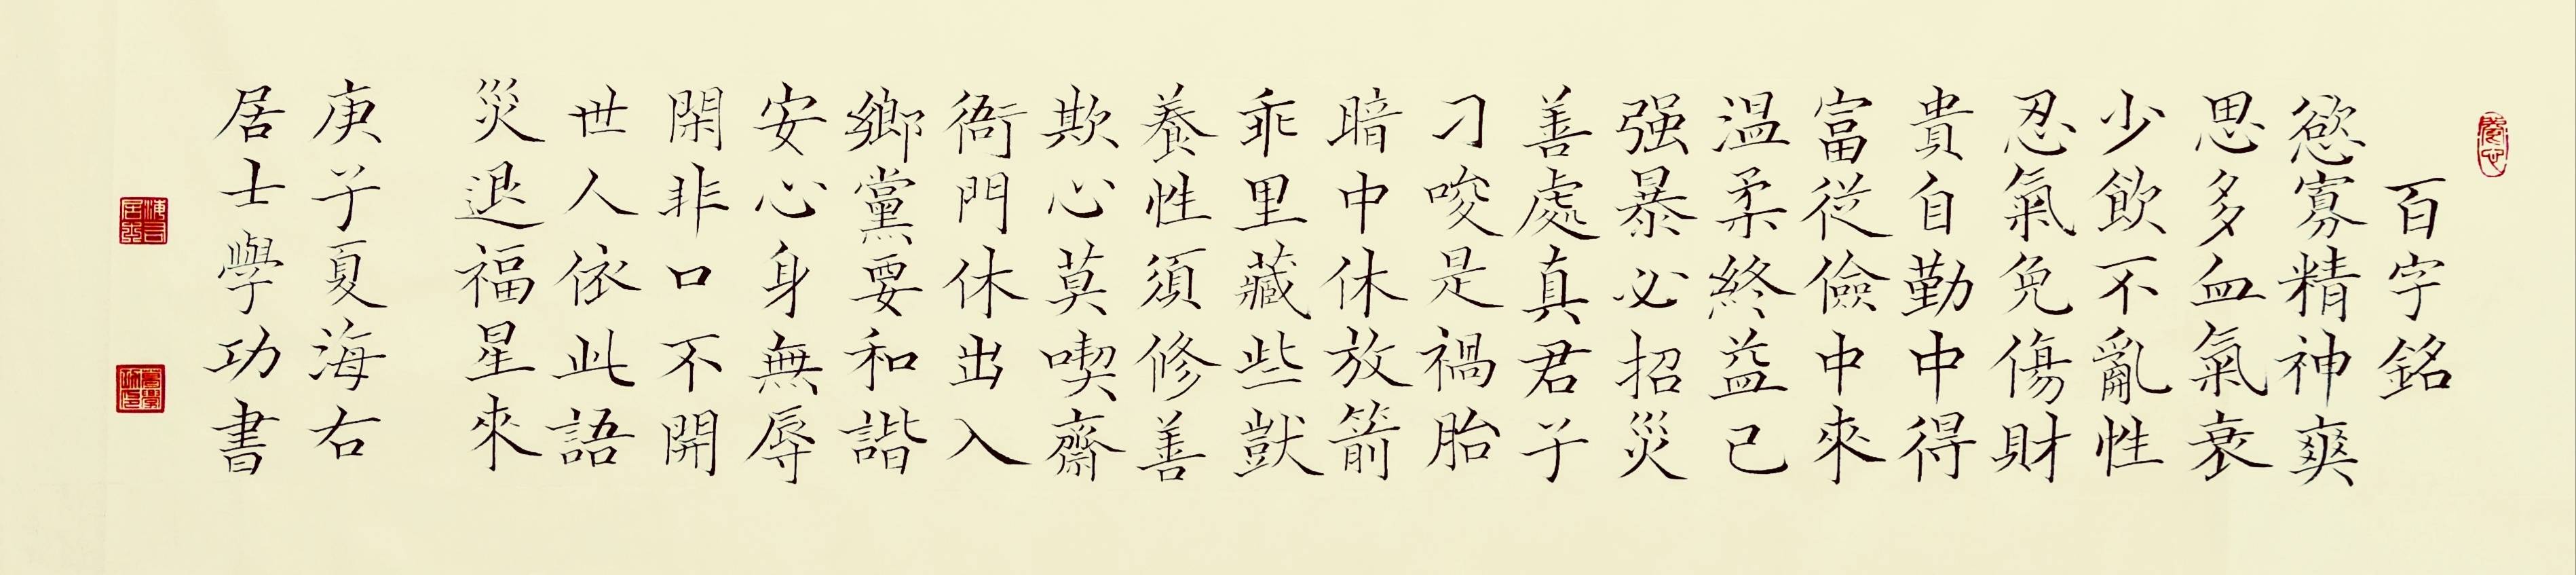 百字銘
慾寡精神爽
思多血氣衰
少飲不亂性
忍氣免傷財
貴自勤中得
富從儉中來
温柔終益己
强暴必招災
善處真君子
刁唆是禍胎
暗中休放箭
乖里藏些獃
養性須修善
欺心莫喫齋
衙門休出入
鄉黨要和諧
安心身無辱
閑非口不開
世人依此語
災退福星來
庚子夏海右
居士學功書